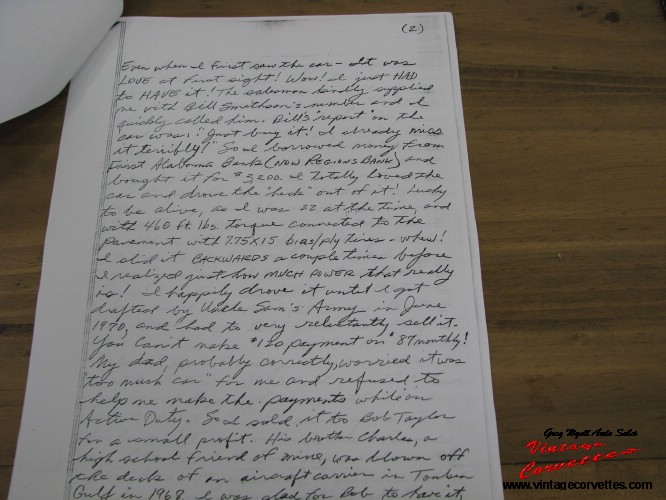 (2)
Even when I first saw the car - It was
LOVE at First sight! Wow! I just HAD
to HAVE it! The salesman kindly supplied
me with Bill Smithson's number and I
quickly called him. Bill's "report" on the
car was: "Just buy it! I already miss
it terribly!" So I borrowed money from
First Alabama Bank (NOW REGIONS BANK) and
bought it for $3,200. I totally loved the
car and drove the "heck" out of it! Lucky
to be alive, as I was 22 at the time, and
with 460 ft. lbs. torque connected to the
pavement with 7.75X15 bias/ply tires - whew!
I slid it BACKWARDS a couple times before
I realized just how MUCH POWER that really
is! I happily drove it until I got
drafted by Uncle Sam's Army in June
1970, and had to very reluctantly sell it.
You Can't make $120 payment on $87 monthly!
My dad, probably correctly, worried it was
"too much car" for me and refused to
help me make the payments while on
Active Duty. So I sold it to Bob Taylor
for a small profit. His brother Charles, a
high school friend of mine, was blown off
the deck of an aircraft carrier in Tonkin
Gulf in 1968. I was glad for Bob to have it,
Greg Wyatt Auto Sales
Vintage
Corvettes
www.vintagecorvettes.com